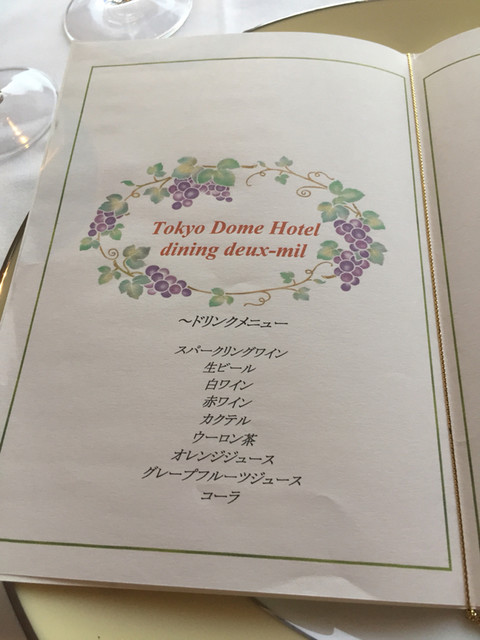 Tokyo Dome Hotel
dining deux-mil
～ドリンクメニュー
スパークリングワイン
生ビール
白ワイン
赤ワイン
カクテル
ウーロン茶
オレンジジュース
グレープフルーツジュース
コーラ